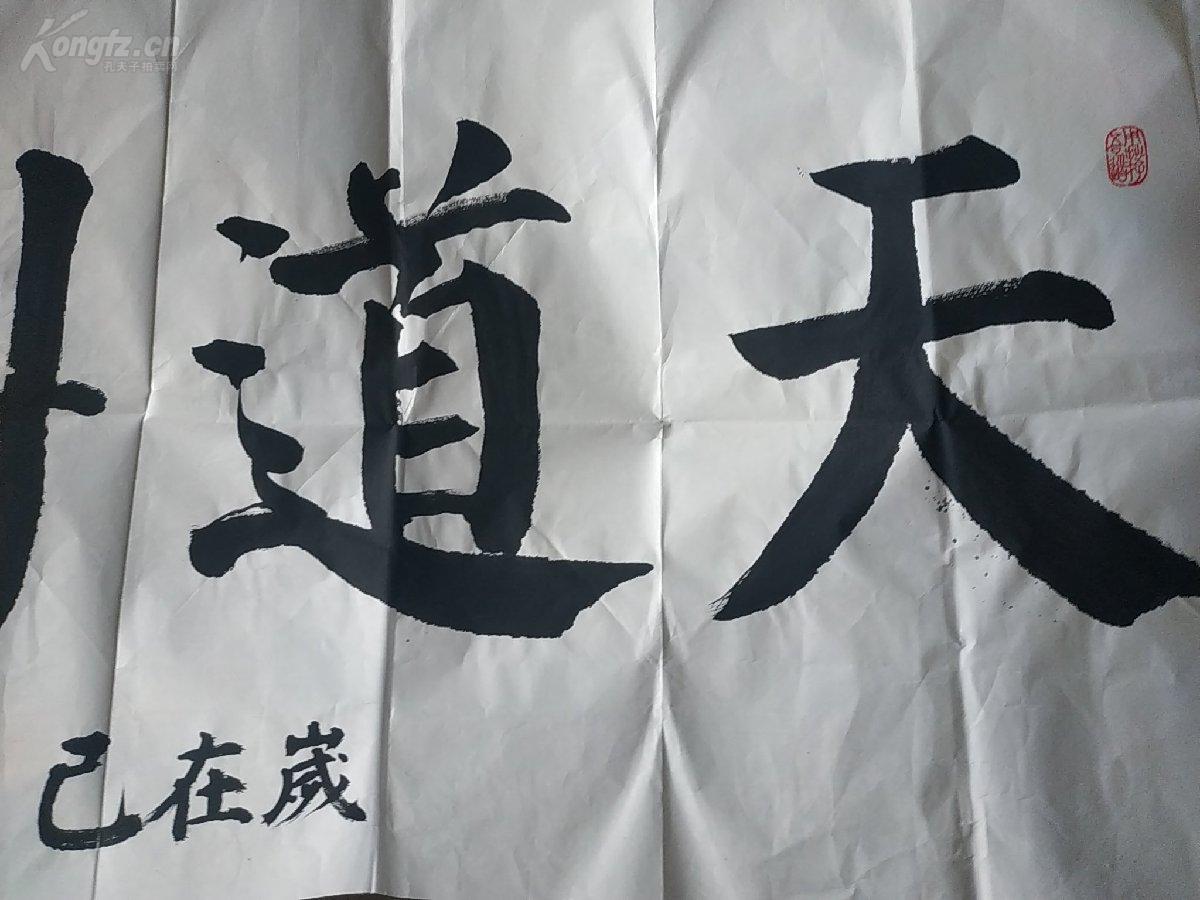 天道
歲在己
Kongfz.cn
孔夫子拍卖网